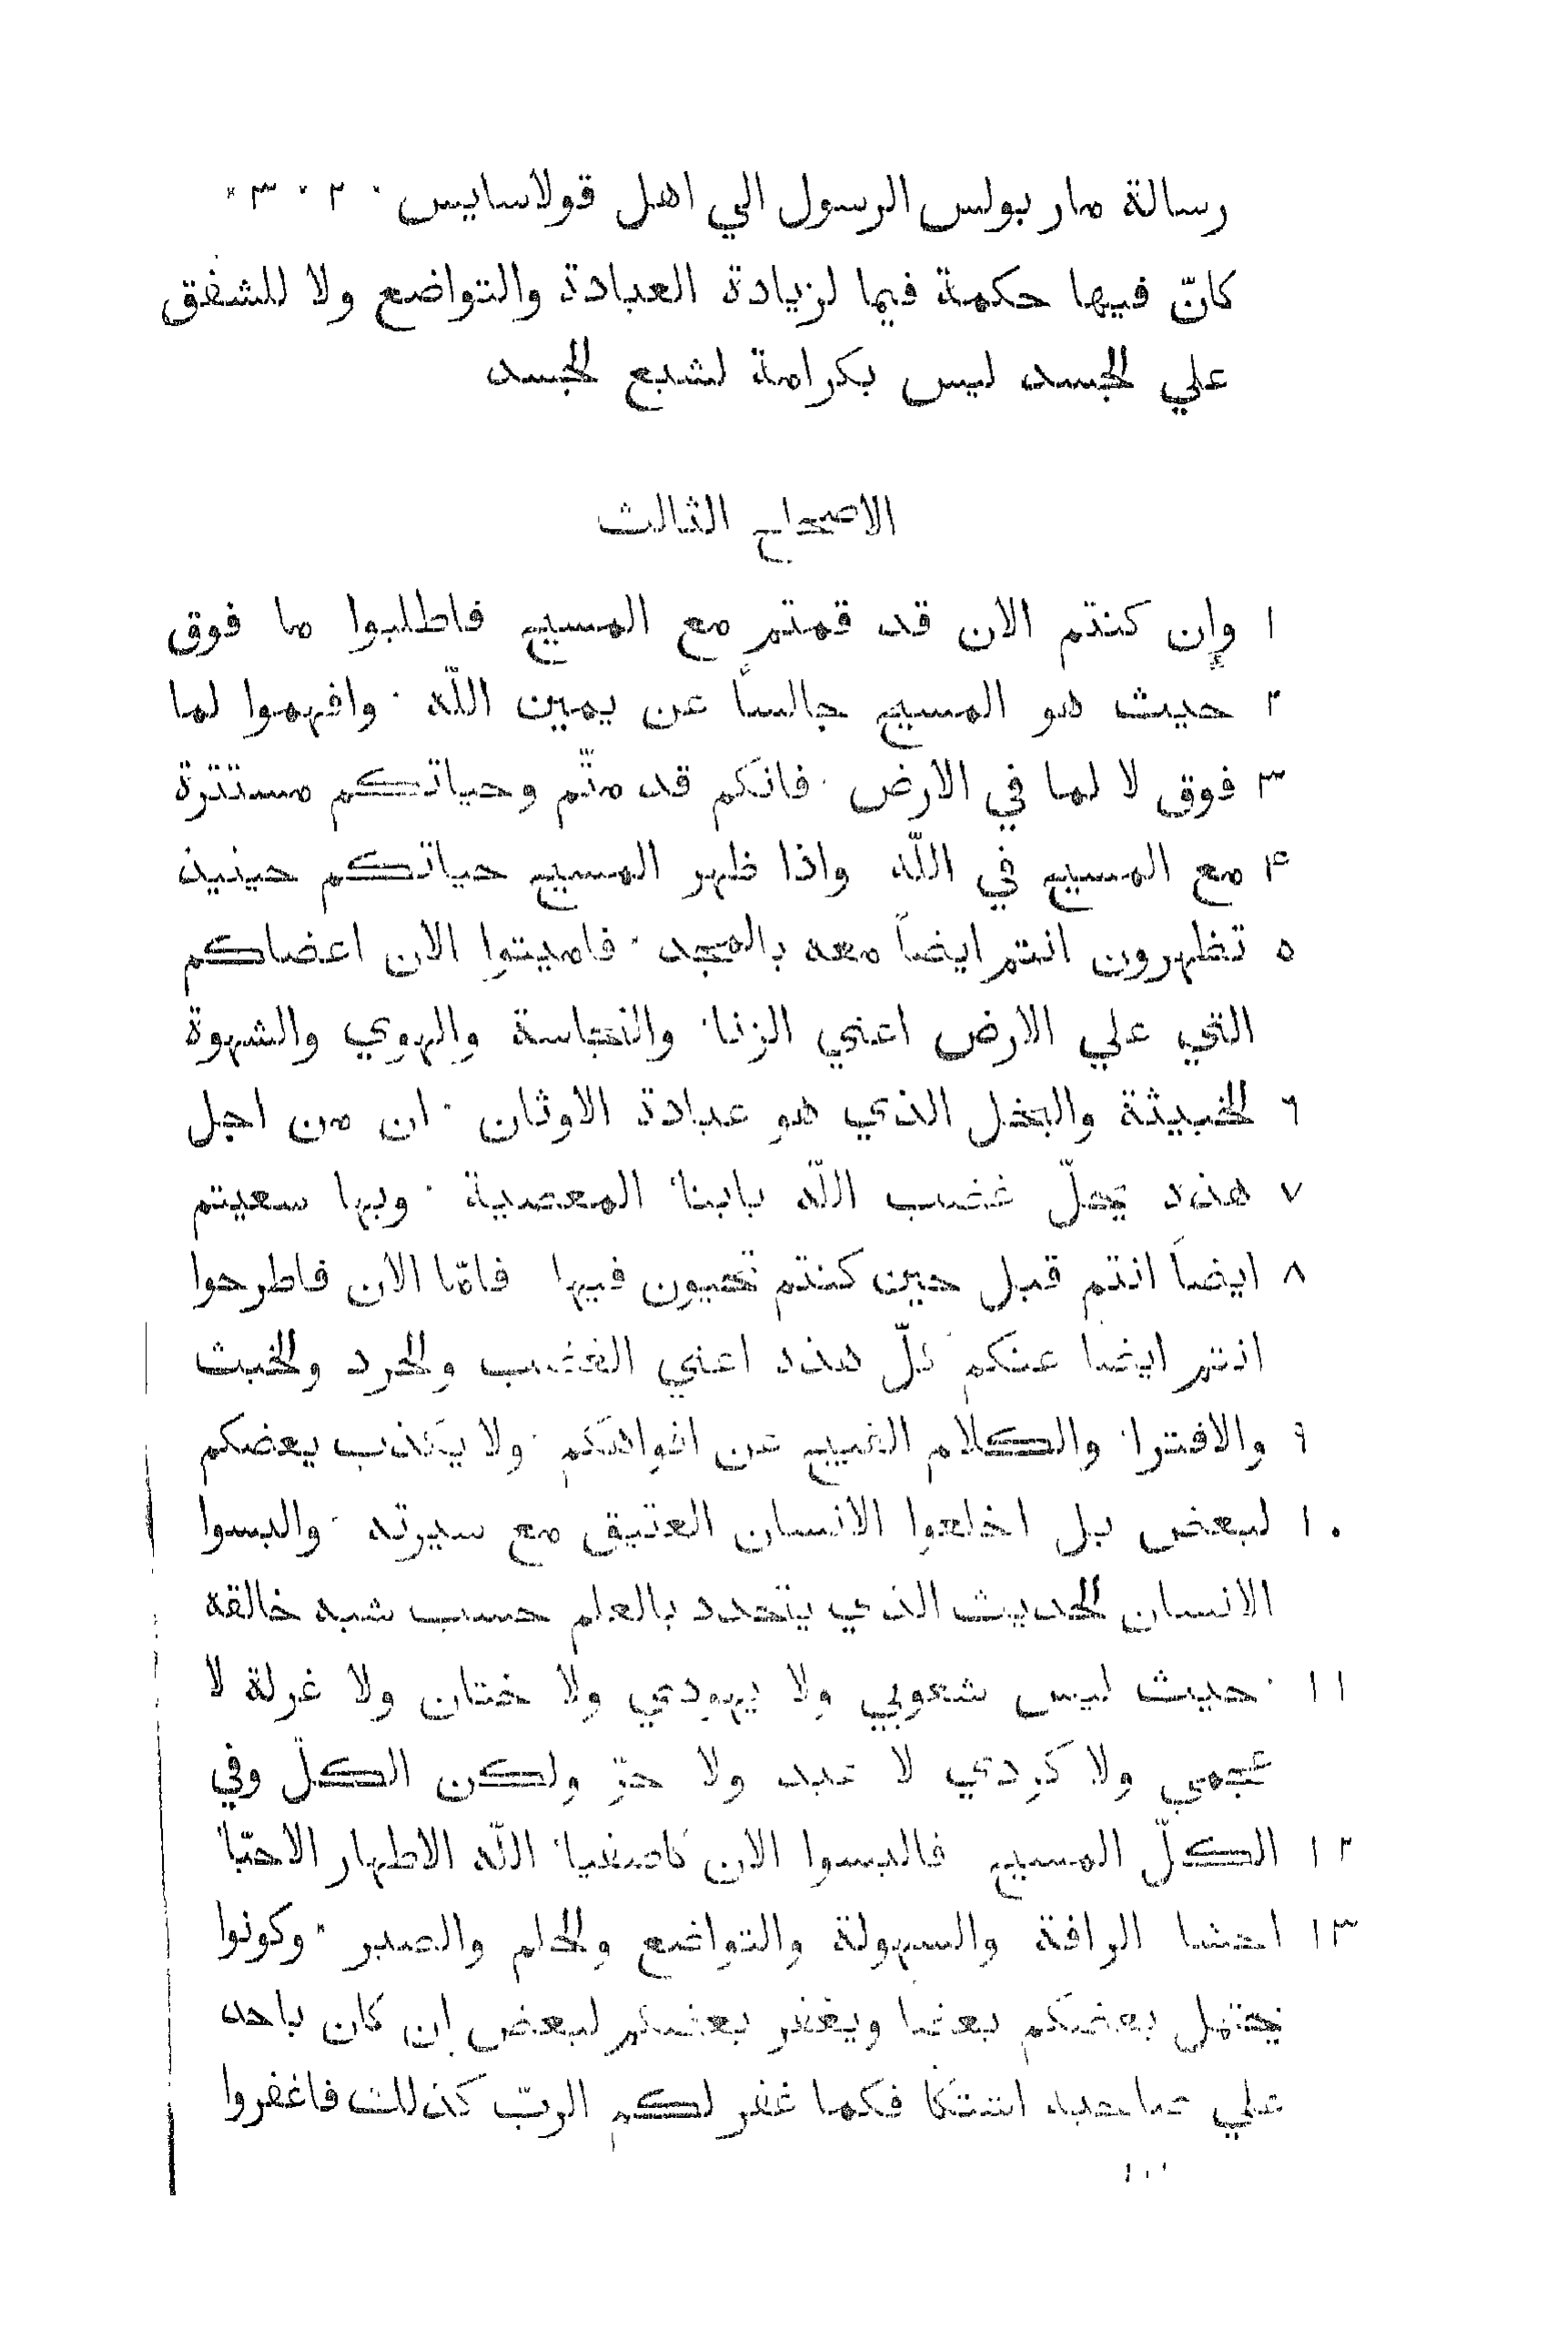 رسالة مار بولس الرسول الي اهل قولاسايس ٠ ٢ ٠ ٣ ٠
كانّ فيها حكمة فيما لزيادة العبادة والتواضع ولا للشفق
علي الجسد ليس بكرامة لشبع الجسد
الاصحاح الثالث
١ وإن كنتم الان قد قمتم مع المسيح فاطلبوا ما فوق
٢ حيث هو المسيح جالساً عن يمين اللّه ٠ وافهموا لما
٣ فوق لا لما في الارض ٠ فانكم قد متّم وحياتكم مستترة
۴ مع المسيح في اللّه واذا ظهر المسيح حياتكم حينيذ
٥ تظهرون انتم ايضاً معه بالمجد ٠ فاميتوا الان اعضاكم
التي علي الارض اعني الزناء والنجاسة والهوي والشهوة
٦ الخبيثة والبخل الذي هو عبادة الاوثان ٠ ان من اجل
٧ هذه يحلّ غضب اللّه بابناء المعصية ٠ وبها سعيتم
٨ ايضاً انتم قبل حين كنتم تحيون فيها فامّا الان فاطرحوا
انتم ايضا عنكم كلّ هذه اعني الغضب والحرد والخبث
٩ والافتراء والكلام القبيح عن افواهكم ٠ ولا يكذب بعضكم
١٠ لبعض بل اخلعوا الانسان العتيق مع سيرته ٠ والبسوا
الانسان الحديث الذي يتجدد بالعلم حسب شبه خالقه
١١ ٠ حيث ليس شعوبي ولا يهودي ولا ختان ولا غرلة لا
عجمي ولا كردي لا عبد ولا حرّ ولكن الكلّ وفي
١٢ الكلّ المسيح فالبسوا الان كاصفياء اللّه الاطهار الاحبّاء
١٣ احشا الرافة والسهولة والتواضع والحلم والصبر ٠ وكونوا
يحتمل بعضكم بعضا ويغفر بعضكم لبعض إن كان باحد
علي صاحبه اشتكا فكما غفر لكم الربّ كذلك فاغفروا